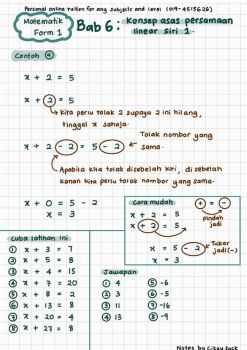 Personal online tuition for any subjects and level (019-4515626)
Matematik
Form 1
Bab 6: Konsep asas persamaan
linear siri 1.
Contoh a
x + 2 = 5
x + 2 = 5
Kita perlu tolak 2 supaya 2 ini hilang,
tinggal x sahaja.
x + 2 - 2 = 5 - 2
Tolak nombor yang
sama.
Apabila kita tolak disebelah kiri, di sebelah
kanan kita perlu tolak nombor yang sama.
x + 0 = 5 - 2
x = 3
Cara mudah
+ = -
x + 2 = 5
x + 2 = 5
pindah
jadi
x = 5 - 2
x = 3
Tukar
jadi (-)
Cuba latihan ini
1 x + 3 = 7
2 x + 5 = 8
3 x + 4 = 15
4 x + 7 = 20
5 x + 8 = 2
6 x + 7 =
7 x + 20 = 4
8 x + 27 = 8
Jawapan
1 4
2 3
3 11
4 13
5 -6
6 -5
7 -16
8 -9
Notes by Cikgu